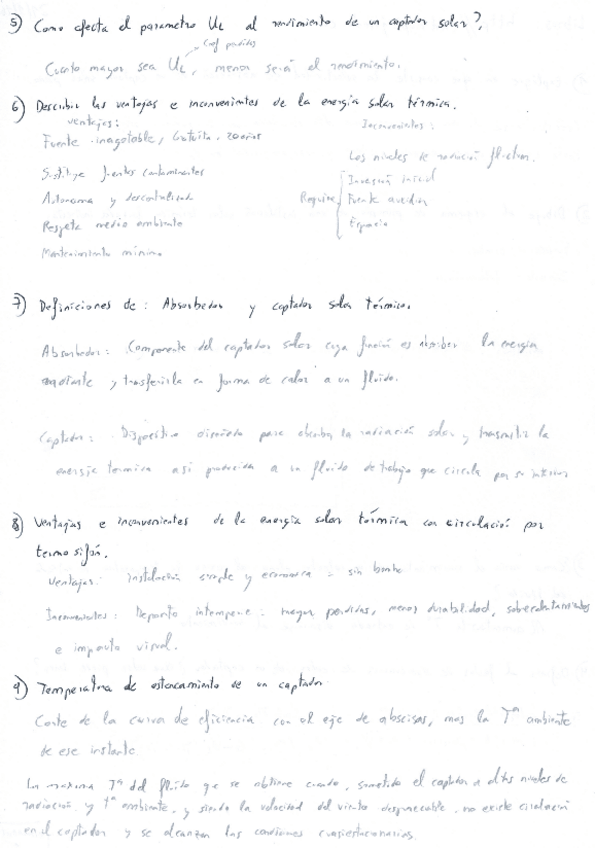 5) Como afecta el parametro UL al rendimiento de un captador solar?
Coef perdidas
Cuanto mayor sea UL, menor será el rendimiento.
6) Describir las ventajas e inconvenientes de la energia solar térmica.
Ventajas: Inconvenientes:
Fuente inagotable, Gratuita, 20 años
Los niveles de radiación fluctuan.
Sustituye fuentes contaminantes
Inversión inicial
Autonoma y descentralizada
Requiere Fuente auxiliar
Respeta medio ambiente
Espacio
Mantenimiento mínimo
7) Definiciones de: Absorbedor y captador solar térmico.
Absorbedor: Componente del captador solar cuya función es absorber la energia
radiante y transferirla en forma de calor a un fluido.
Captador: Dispositivo diseñado para absorber la radiación solar y transmitir la
energia termica asi producida a un fluido de trabajo que circula por su interior
8) Ventajas e inconvenientes de la energia solar térmica con circulación por
termosifón.
Ventajas: instalación simple y economica - sin bomba
Inconvenientes: Deposito intemperie - mayor perdidas, menos durabilidad, sobrecalentamientos
e impacto visual.
9) Temperatura de estancamiento de un captador
Corte de la curva de eficiencia con el eje de abscisas, mas la Tª ambiente
de ese instante
La maxima Tª del fluido que se obtiene cuando, sometido el captador a altos niveles de
radiación y tª ambiente, y siendo la velocidad del viento despreciable, no existe circulación
en el captador y se alcanzan las condiciones cuasiestacionarias.